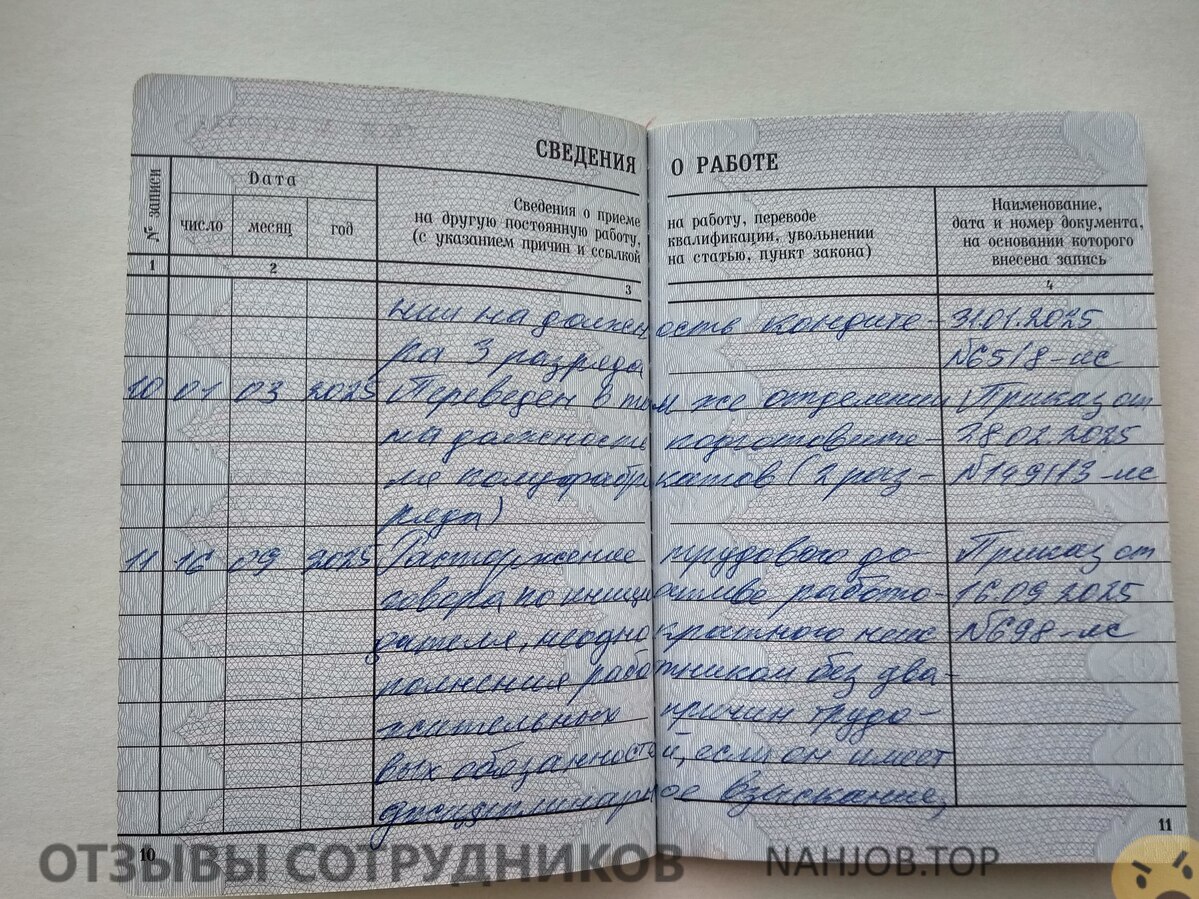 СВЕДЕНИЯ О РАБОТЕ
№ записи
Дата
число месяц год
Сведения о приеме на работу, переводе
на другую постоянную работу, квалификации, увольнении
(с указанием причин и ссылкой на статью, пункт закона)
Наименование,
дата и номер документа,
на основании которого
внесена запись
1 2 3 4
нии на должность кондите- 31.01.2025
ра 3 разряда №65/8-лс
10 01 03 2025 Переведен в том же отделении Приказ от
на должность подготовите- 28.02.2025
ля полуфабрикатов (2 раз- №149/13-лс
ряда)
11 16 09 2025 Расторжение трудового до Приказ от
говора по инициативе работо- 16.09.2025
дателя, неоднократного неис №698-лс
полнения работником без ува-
жительных причин трудо-
вых обязанностей, если он имеет
дисциплинарное взыскание,
10 11
ОТЗЫВЫ СОТРУДНИКОВ NAHJOB.TOP